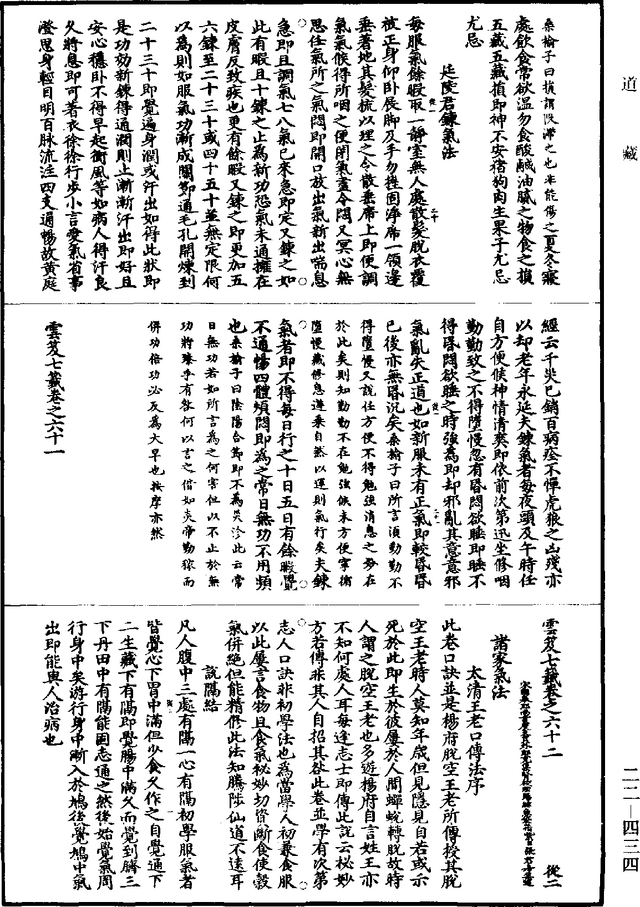 道藏
桑榆子曰損謂陝滯之也未能傷之夏冬寢
處飲食常欲溫勿食酸鹹油膩之物食之損
五藏五藏損即神不安猪狗肉生果子尤忌
尤忌
延陵君鍊氣法
每服氣餘暇取一靜室無人處散髮脫衣覆
被正身仰卧展脚及手勿捲固淨席一領邊
垂著地其髮梳以理之令散垂席上即便調
氣氣候得所咽之便閉氣盡令悶又冥心無
思任氣所之氣悶即開口放出氣新出喘息
急即且調氣七八氣已來急即定又鍊之如
此有暇且十鍊之止為新功恐氣未通擁在
皮膚反致疾也更有餘暇又鍊之即更加五
六鍊至二十三十或四十五十並無定限何
以為則如服氣功漸成關節通毛孔開煉到
二十三十即覺遍身潤或汗出如得此狀即
是功効新鍊得通潤則止漸漸汗出即好且
安心穩卧不得早起衝風等如病人得汗良
久將息即可著衣徐徐行步小言愛氣省事
澄思身輕目明百脉流注四支通暢故黃庭
經云千災已銷百病痊不憚虎狼之凶殘亦
以却老年永延夫鍊氣者每夜頭及午時任
自方便候神情清爽即依前次第迅坐修咽
勤勤致之不得墮慢忽有昏悶欲睡即睡不
得昏悶欲睡之時強為即却邪亂其意意邪
氣亂失正道也如新服未有正氣即較昏昏
已後亦無昏況矣桑榆子曰所言須勤勤不
得墮慢又說任方便不得勉強消息之妙在
於此矣則知勤勤不在勉強俟未方便寧衛
墮慢藏修息遊乘自然以運則氣行矣夫鍊
氣者即不得每日行之十日五日有餘暇覺
不通暢四體煩悶即為之常日無功不用頻
也桑榆子曰陰陽合節即不為災沴此云常
日無功若如所言為之何害但以不止於無
功將臻乎有咎何以言之借如炎帝勤稼而
併功倍功必反為大旱也按摩亦然
雲笈七籤卷之六十一
雲笈七籤卷之六十二
諸家氣法
太清王老口傳法序
此卷口訣並是楊府脫空王老所傳授其脫
空王老時人莫知年歲但見隱見自若或示
死於此即生於彼屢於人間蟬蛻轉脫故時
人謂之脫空王老也多遊楊府自言姓王亦
不知何處人耳每逢志士即傳此說云秘妙
方若傳非其人自招其咎此卷並學有次第
志人口訣非初學法也為當學人初兼食服
以此屢言食物且食氣秘妙切資斷食使穀
氣併絕但能精修此法知騰陟仙道不遠耳
說隔結
凡人腹中三處有隔一心有隔初學服氣者
皆覺心下胃中滿但少食久作之自覺通下
二生藏下有隔即覺腸中滿久而覺到臍三
下丹田中有隔能固志通之然後始覺氣周
行身中矣遊行身中漸入於鳩後覺鳩中氣
出即能與人治病也
二二—四三四